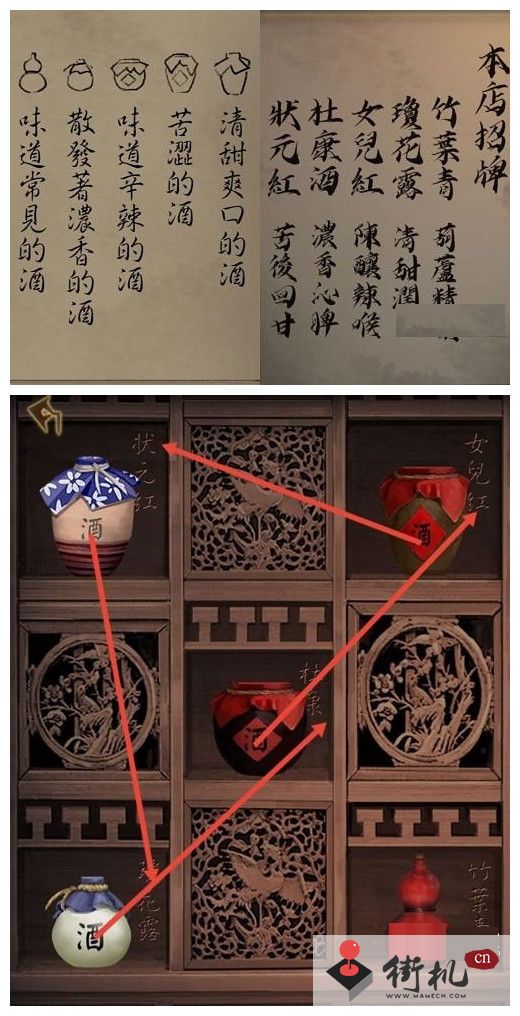 本店招牌
竹葉青 葫蘆精
瓊花露 清甜潤
女兒紅 陳釀辣喉
杜康酒 濃香沁脾
狀元紅 苦後回甘
清甜爽口的酒
苦澀的酒
味道辛辣的酒
散發著濃香的酒
味道常見的酒
状元红
酒
女兒红
酒
杜康
酒
花露
酒
竹葉
街机
cn
WWW.MAMECN.COM